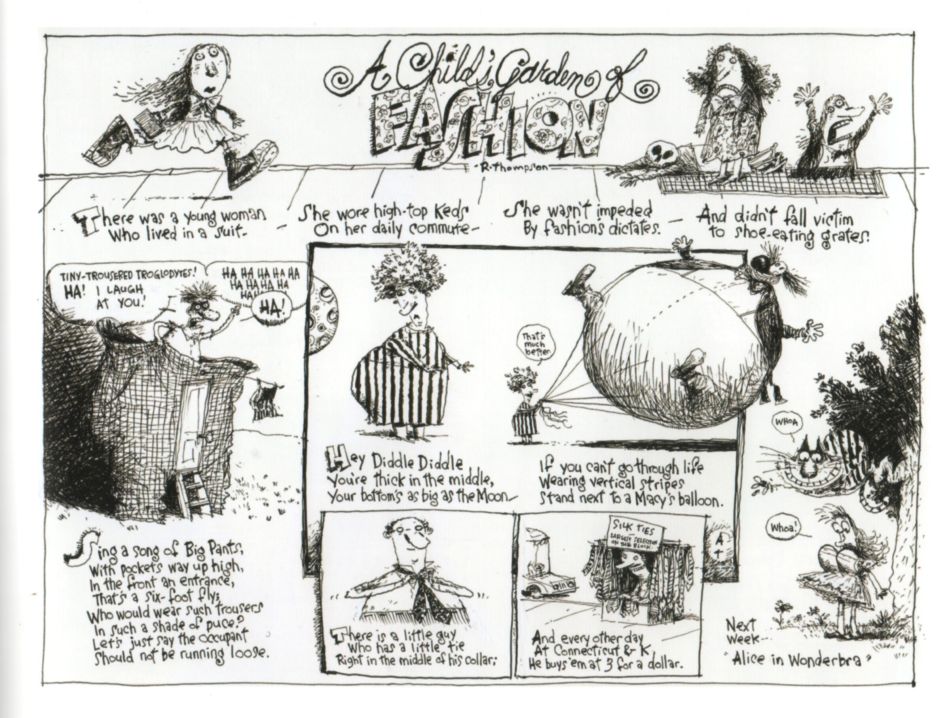 A Child's Garden of
FASHION
R. Thompson
There was a young woman
Who lived in a suit.
She wore high-top Keds
On her daily commute—
She wasn't impeded
By fashions dictates.
And didn't fall victim
to shoe-eating grates.
TINY-TROUSERED TROGLODYTES!
HA! I LAUGH
AT YOU!
HA HA HA HA HA
HA HA HA HA
HA!
HA!
Sing a song of Big Pants,
With pockets way up high,
In the front an entrance,
That's a six-foot fly;
Who would wear such trousers
In such a shade of puce?
Let's just say the occupant
Should not be running loose.
Hey Diddle Diddle
You're thick in the middle,
Your bottom's as big as the Moon—
That's
much
better
If you can't go through life
Wearing vertical stripes
Stand next to a Macy's balloon.
There is a little guy
Who has a little tie
Right in the middle of his collar;
SILK TIES
LARGEST SELECTION
ON OUR BLOCK
And every other day
At Connecticut & K,
He buys 'em at 3 for a dollar.
WHOA
Whoa!
Next
Week--
"Alice in Wonderbra"